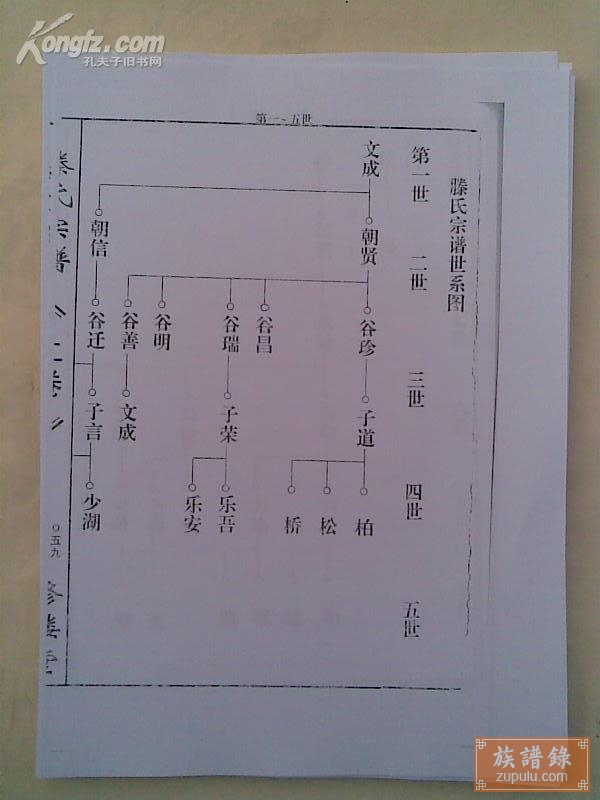 Kongfz.com
孔夫子旧书网
第一~五世
滕氏宗谱世系图
第一世
二世
三世
四世
五世
文成
朝贤
朝信
谷珍
谷昌
谷瑞
谷明
谷善
谷迁
子道
子荣
文成
子言
柏
松
桥
乐吾
乐安
少湖
滕氏宗谱《二卷》
〇五九
族譜錄
zupulu.com